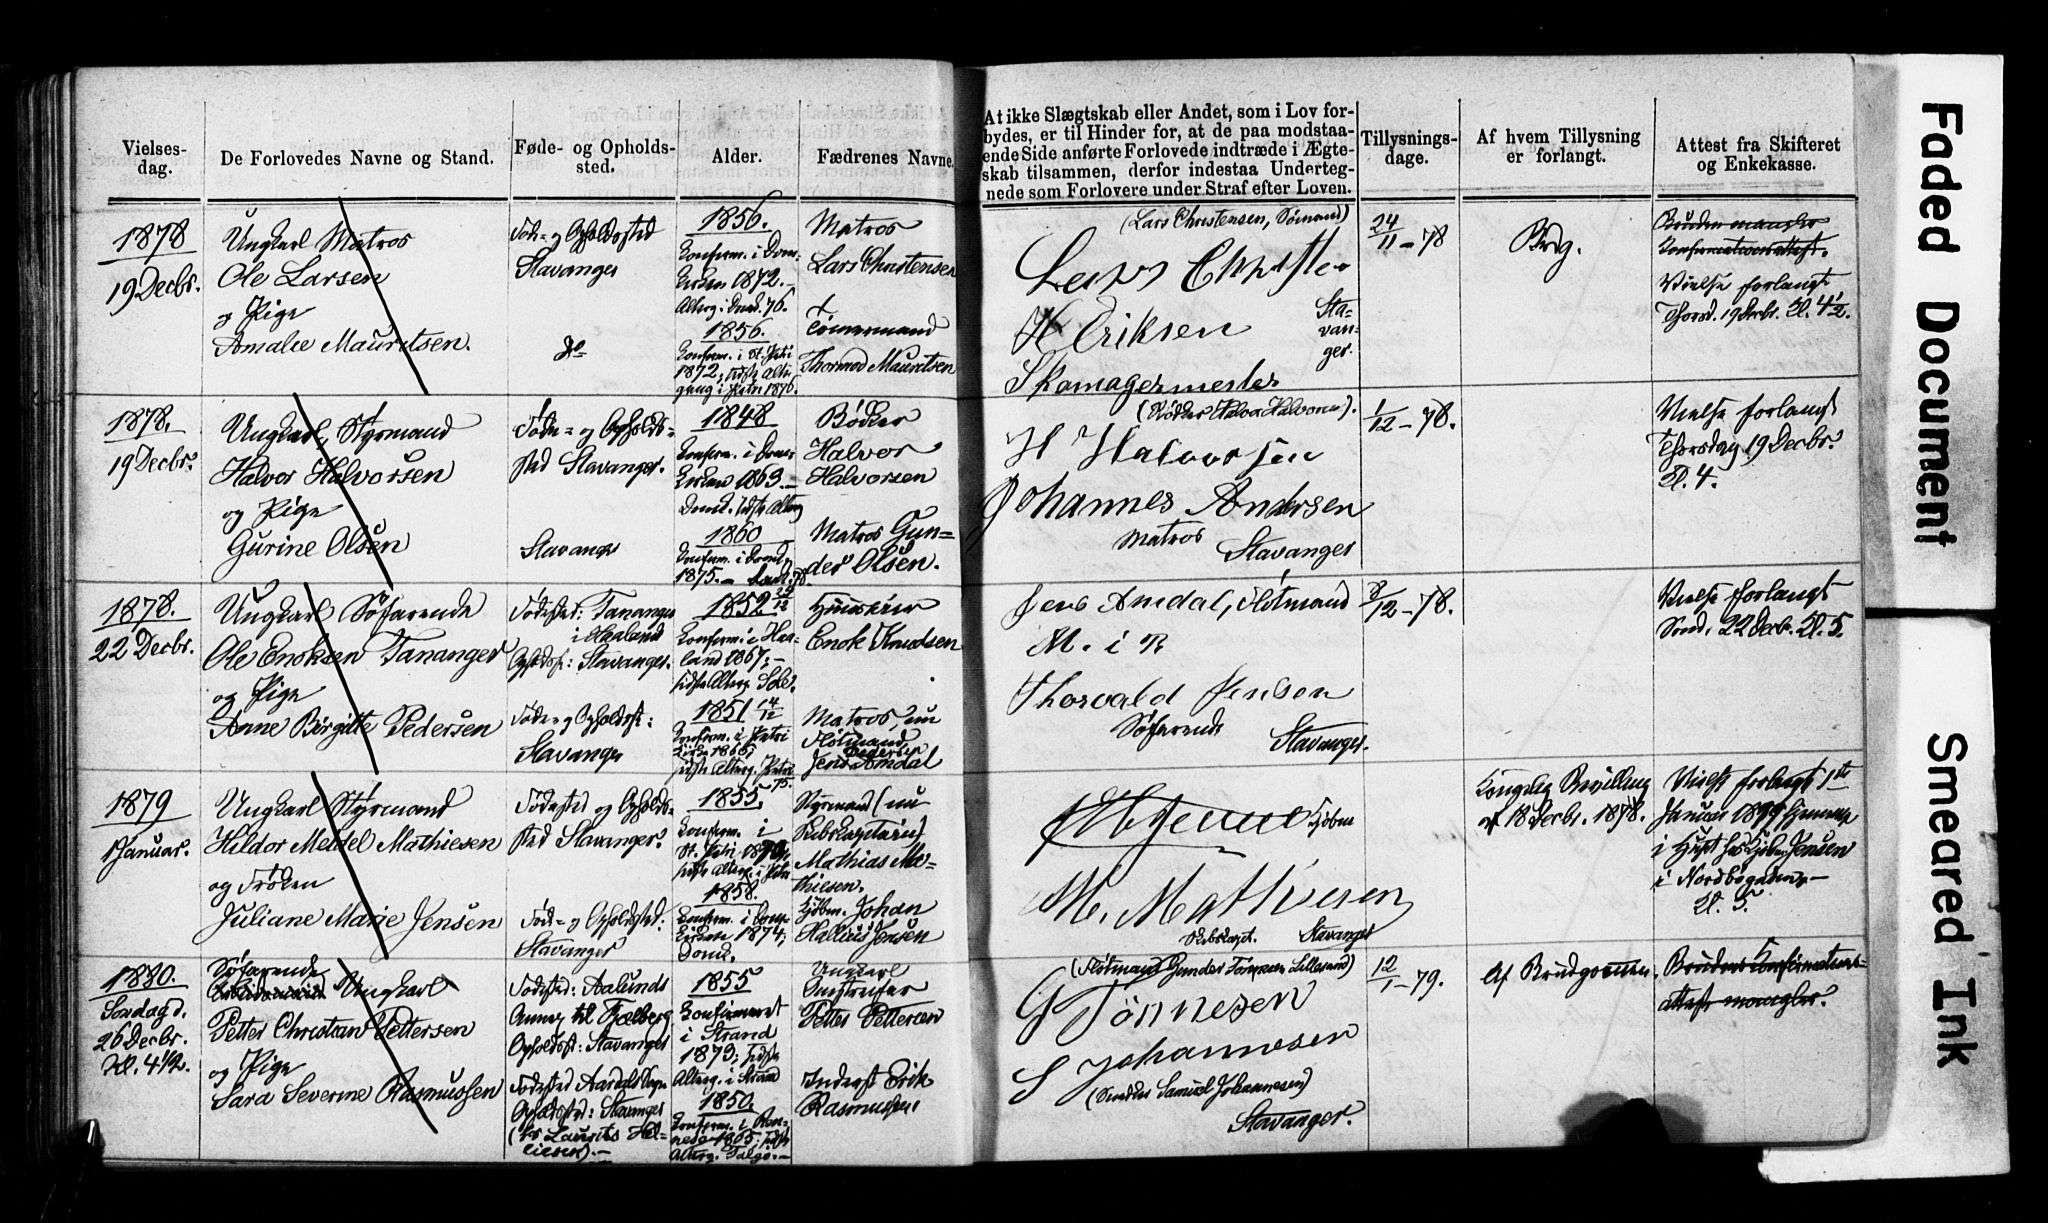 Vielses-
dag.
De Forlovedes Navne og Stand.
Føde- og Opholds-
sted.
Alder.
Fædrenes Navne.
At ikke Slægtskab eller Andet, som i Lov for-
bydes, er til Hinder for, at de paa modstaa-
ende Side anførte Forlovede indtræde i Ægte-
skab tilsammen, derfor indestaa Underteg-
nede som Forlovere under Straf efter Loven.
Tillysnings-
dage.
Af hvem Tillysning
er forlangt.
Attest fra Skifteret
og Enkekasse.
1878
19 Decbr.
Ungkarl Matros
Ole Larsen
og Pige
Amalie Mauritsen.
Føde- og Opholdsted
Stavanger
Do
1856.
Konfirm. i Dom-
kirken 1872.-
Altergg. i Domk. 76.
1856.
Konfirm. i St. Petri
1872; sidste Alter-
gang i Petri 1876.
Matros
Lars Christensen
Tømermand
Thormod Mauritsen
(Lars Christensen, Sømand)
Lars Christe
H Eriksen
Sta-
van-
ger.
Skomagermester
24/11-78
Brdg.
Bruden mangler
Konfirmationsattest.
Vielse forlangt
Thorsd. 19 Decbr. Kl. 4½.
1878.
19 Decbr.
Ungkarl, Styrmand
Halvor Halvorsen
og Pige
Gurine Olsen
Føde- og Opholds-
sted Stavanger.
Stavanger
1848
Konfirm. i Dom-
kirken 1863.-
Domk. sidste Alterg
1860
Konfirm. i Domk.
1875.-
Bødker
Halvor
Halvorsen
Matros Gun-
der Olsen.
(Bødker Halvor Halvorsen).
H Halvorsen
Johannes Andersen
Matros
Stavanger
1/12-78.
Vielse forlangt
Thorsdag 19 Decbr.
Kl. 4.
1878.
22 Decbr.
Ungkarl Søfarende
Ole Enoksen Tananger
og Pige
Anne Birgitte Pedersen
Fødested: Tananger
i Haaland
Opholdst: Stavanger.
Føde- og Opholdst:
Stavanger
1852 22/12
Konfirm. i Haa-
land 1867;-
sidste Alterg. Sole.
1851 14/12
Konfirm. i Petri
Kirke 1866;
sidste Alterg. Petri
75.
Huusfører
Enok Knudsen
Matros, nu
Flotmand
Pedersen
Jens Amdal
Jens Amdal, Flotmand
M. i P.
Thorvald Jensen
Søfarende
Stavanger.
8/12-78.
Vielse forlangt
Sønd. 22 Decb. Kl. 5.
1879
1 Januar.
Ungkarl Styrmand
Hildor Meidel Mathiesen
og Frøken
Juliane Marie Jensen
Fødested og Opholds-
sted Stavanger.
Føde- og Opholdsted:
Stavanger
1855.
Konfirm. i
St. Petri 1870,
sidste Alterg. i Petri
1858.
Konfirm. i Dom-
kirken 1874;
Domk.
Styrmand (nu
Skibskaptain)
Mathias Ma-
thiesen.
Kjøbm. Johan
Hallius Jensen
Kjøbm
M. Mathiesen
Skibskapt.
Stavanger
Kongelig Bevilling
af 18 Decbr. 1878.
Vielse forlangt 1ste
Januar 1879 hjemme
i Huset hos Kjøbm. Jensen
i Nordbøgaden,-
Kl. 5.
1880.
Søndag d.
26 Decbr.
Kl. 4½.
Søfarende
Ungkarl
Petter Christian Pettersen
og Pige
Sara Severine Rasmussen
Fødested: Aalunds
Annex til Fjelberg
Opholdst: Stavanger
Fødested Aardals Sogn
Opholdsted: Stavanger
(hos Laurits Hel-
liesen).-
1855
Konfirmeret
i Strand
1873; sidste
Alterg. i Strand
1850.
Konfirm. i Ren-
nesø 1865; sidste
Alterg. Talgø.-
Ungkarl
Petter Pettersen
Inderst Erik
Rasmussen
(Flotmand Gunder Tønnesen Lillesund)
G Tönnesen
S Johannesen
(Samuel Johannesen)
Stavanger.
12/1-79.
Af Brudgommen
Brudens Konfirmations-
attest mangler.
Faded Document
Smeared Ink